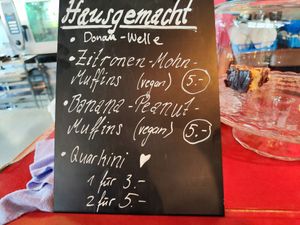 Hausgemacht
• Donau-Welle
• Zitronen-Mohn-
Muffins (vegan) 5.-
• Banana-Peanut-
Muffins (vegan) 5.-
• Quarkini ♥
1 für 3.-
2 für 5.-